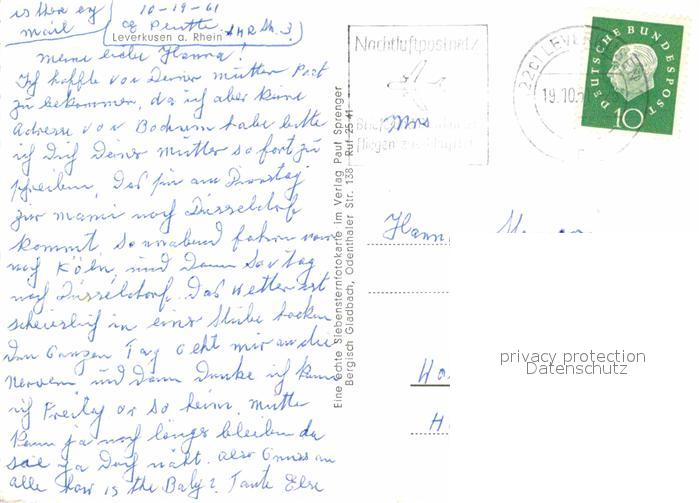 is there any
mail
10-19-61
Leverkusen a. Rhein
Meine liebe Hanna!
Ich hoffte von Deiner Mutter Post
zu bekommen, da ich aber keine
Adresse von Bochum habe bitte
ich Dich Deiner Mutter sofort zu
schreiben, das sie am Dienstag
zur Mami nach Düsseldorf
kommt. Sonnabend fahren wir
nach Köln, und dann Sontag
nach Düsseldorf. Das Wetter ist
scheuslich in einer Stube hocken
den Ganzen Tag geht mir an die
Nerven und dann denke ich kann
ich Freitag or so heim. Mutter
kann ja noch länger bleiben da
sie ja Dich näht. Also Gruss an
alle how is the Baby? Tante Else
Eine echte Siebensternfotokarte im Verlag Paul Sprenger
Bergisch Gladbach, Odenthaler Str. 138 - Ruf 25 41
Nachtluftpostnetz
fliegen
(22c) LEVERKUSEN
19.10.
DEUTSCHE BUNDESPOST
10
Mrs
Hann
Ha
H
privacy protection
Datenschutz